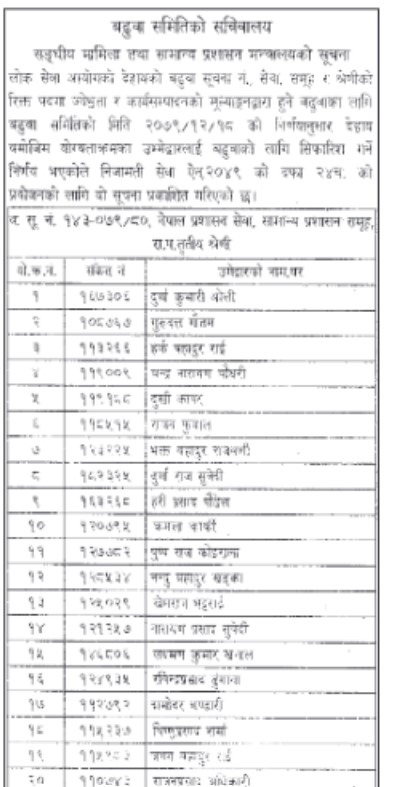 बढुवा समितिको सचिवालय
सङ्घीय मामिला तथा सामान्य प्रशासन मन्त्रालयको सूचना
लोक सेवा आयोगको देहायको बढुवा सूचना नं., सेवा, समूह र श्रेणीको
रिक्त पदमा ज्येष्ठता र कार्यसम्पादनको मूल्याङ्कनद्वारा हुने बढुवाका लागि
बढुवा समितिको मिति २०७९/१२/१८ को निर्णयानुसार देहाय
बमोजिम योग्यताक्रमका उम्मेद्वारलाई बढुवाको लागि सिफारिश गर्ने
निर्णय भएकोले निजामती सेवा ऐन,२०४९ को दफा २४घ. को
प्रयोजनको लागि यो सूचना प्रकाशित गरिएको छ।
ब. सू. नं. १४३-०७९/८०, नेपाल प्रशासन सेवा, सामान्य प्रशासन समूह,
रा.प.तृतीय श्रेणी
यो.क्र.नं. संकेत नं उमेद्वारको नाम,थर
१ १६७३०६ दुर्गा कुमारी ओली
२ १०८७६७ गुरुदत्त गौतम
३ ११३२६६ हर्क बहादुर राई
४ ११९००९ चन्द्र नारायण चौधरी
५ दुखी काफर
६ ११८५१५ राजन फुयाल
७ १२३२२५ भक्त बहादुर राजवंशी
८ १८२३२५ दुर्गा राज सुवेदी
९ १६३२६८ हरी प्रसाद पौडेल
१० १२०७९५ कमला कार्की
११ १२७७८२ पुष्प राज कोइराला
१२ १२८५३४ नन्दु बहादुर खड्का
१३ १२५०२९ खेमराज भट्टराई
१४ १२१२५७ नारायण प्रसाद सुवेदी
१५ १४६८०६ लक्ष्मण कुमार खनाल
१६ १२४९३५ रविन्द्रप्रसाद ढुंगाना
१७ ११२७९२ दामोदर भण्डारी
१८ ११५२३७ विष्णुप्रसाद शर्मा
१९ बहादुर राई
२० ११०७४३ अधिकारी